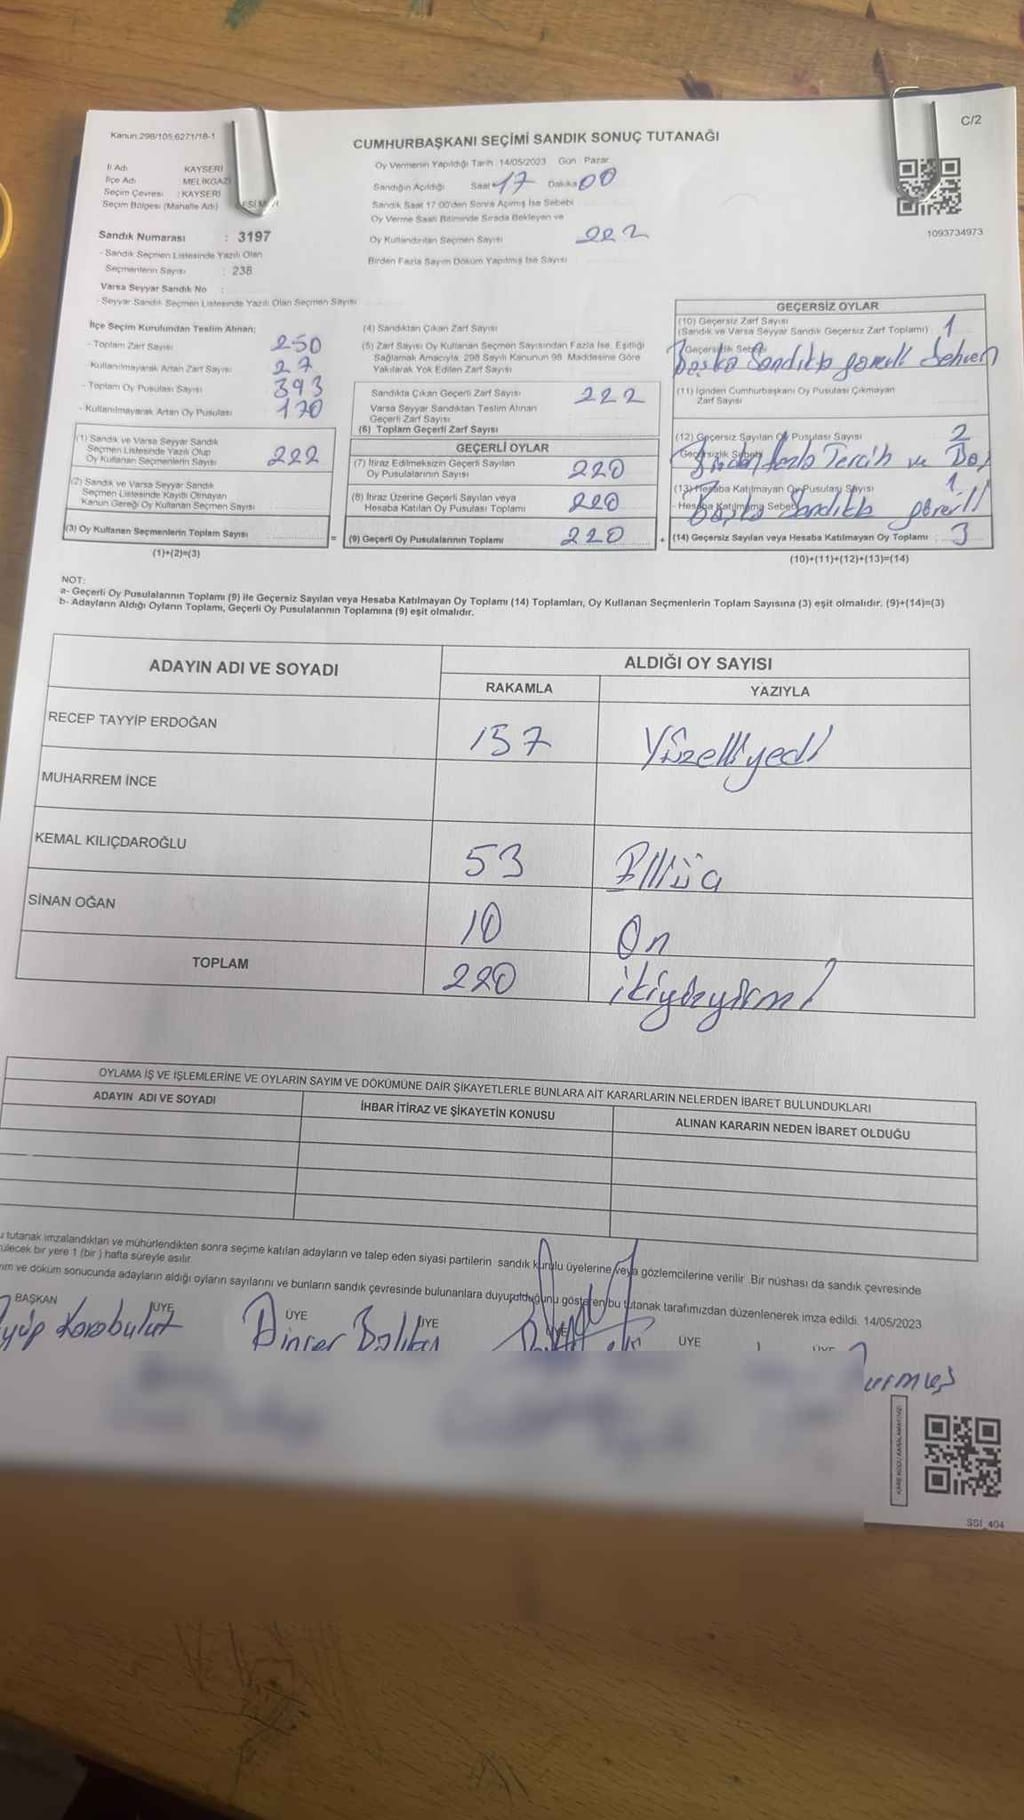 Kanun:298/105,6271/18-1
C/2
CUMHURBAŞKANI SEÇİMİ SANDIK SONUÇ TUTANAĞI
Oy Vermenin Yapıldığı Tarih :14/05/2023 Gün : Pazar
İl Adı : KAYSERİ
İlçe Adı : MELİKGAZİ
Seçim Çevresi : KAYSERİ
Seçim Bölgesi (Mahalle Adı)
Sandığın Açıldığı Saat 17 Dakika 00
Sandık Saat 17:00'den Sonra Açılmış İse Sebebi
Oy Verme Saati Bitiminde Sırada Bekleyen ve
Oy Kullandırılan Seçmen Sayısı 222
Birden Fazla Sayım Döküm Yapılmış İse Sayısı
1093734973
Sandık Numarası : 3197
- Sandık Seçmen Listesinde Yazılı Olan
Seçmenlerin Sayısı : 238
Varsa Seyyar Sandık No :
- Seyyar Sandık Seçmen Listesinde Yazılı Olan Seçmen Sayısı
İlçe Seçim Kurulundan Teslim Alınan;
- Toplam Zarf Sayısı 250
- Kullanılmayarak Artan Zarf Sayısı 27
- Toplam Oy Pusulası Sayısı 393
- Kullanılmayarak Artan Oy Pusulası 170
(1) Sandık ve Varsa Seyyar Sandık
Seçmen Listesinde Yazılı Olup
Oy Kullanan Seçmenlerin Sayısı 222
(2) Sandık ve Varsa Seyyar Sandık
Seçmen Listesinde Kayıtlı Olmayan
Kanun Gereği Oy Kullanan Seçmen Sayısı
(3) Oy Kullanan Seçmenlerin Toplam Sayısı
(1)+(2)=(3)
(4) Sandıktan Çıkan Zarf Sayısı
(5) Zarf Sayısı Oy Kullanan Seçmen Sayısından Fazla İse, Eşitliği
Sağlamak Amacıyla 298 Sayılı Kanunun 98. Maddesine Göre
Yakılarak Yok Edilen Zarf Sayısı
Sandıkta Çıkan Geçerli Zarf Sayısı 222
Varsa Seyyar Sandıktan Teslim Alınan
Geçerli Zarf Sayısı
(6) Toplam Geçerli Zarf Sayısı
GEÇERLİ OYLAR
(7) İtiraz Edilmeksizin Geçerli Sayılan
Oy Pusulalarının Sayısı 220
(8) İtiraz Üzerine Geçerli Sayılan veya
Hesaba Katılan Oy Pusulası Toplamı 220
(9) Geçerli Oy Pusulalarının Toplamı 220
GEÇERSİZ OYLAR
(10) Geçersiz Zarf Sayısı
(Sandık ve Varsa Seyyar Sandık Geçersiz Zarf Toplamı) 1
Geçersizlik Sebebi
Başka Sandıkta
(11) İçinden Cumhurbaşkanı Oy Pusulası Çıkmayan
Zarf Sayısı
(12) Geçersiz Sayılan Oy Pusulası Sayısı 2
Geçersizlik Sebebi
Birden fazla Tercih ve Boş
(13) Hesaba Katılmayan Oy Pusulası Sayısı 1
Hesaba Katılmama Sebebi
Başka Sandıkta
(14) Geçersiz Sayılan veya Hesaba Katılmayan Oy Toplamı 3
(10)+(11)+(12)+(13)=(14)
NOT:
a- Geçerli Oy Pusulalarının Toplamı (9) ile Geçersiz Sayılan veya Hesaba Katılmayan Oy Toplamı (14) Toplamları, Oy Kullanan Seçmenlerin Toplam Sayısına (3) eşit olmalıdır. (9)+(14)=(3)
b- Adayların Aldığı Oyların Toplamı, Geçerli Oy Pusulalarının Toplamına (9) eşit olmalıdır.
ADAYIN ADI VE SOYADI
ALDIĞI OY SAYISI
RAKAMLA YAZIYLA
RECEP TAYYİP ERDOĞAN 157 Yüzelliyedi
MUHARREM İNCE
KEMAL KILIÇDAROĞLU 53 Elliüç
SİNAN OĞAN 10 On
TOPLAM 220 ikiyüzyirmi
OYLAMA İŞ VE İŞLEMLERİNE VE OYLARIN SAYIM VE DÖKÜMÜNE DAİR ŞİKAYETLERLE BUNLARA AİT KARARLARIN NELERDEN İBARET BULUNDUKLARI
ADAYIN ADI VE SOYADI İHBAR İTİRAZ VE ŞİKAYETİN KONUSU ALINAN KARARIN NEDEN İBARET OLDUĞU
tutanak imzalandıktan ve mühürlendikten sonra seçime katılan adayların ve talep eden siyasi partilerin sandık kurulu üyelerine veya gözlemcilerine verilir. Bir nüshası da sandık çevresinde
bir yere 1 (bir) hafta süreyle asılır.
ve döküm sonucunda adayların aldığı oyların sayılarını ve bunların sandık çevresinde bulunanlara duyurulduğunu gösteren bu tutanak tarafımızdan düzenlenerek imza edildi. 14/05/2023
BAŞKAN ÜYE ÜYE ÜYE ÜYE ÜYE
Karabulut
SSI_404